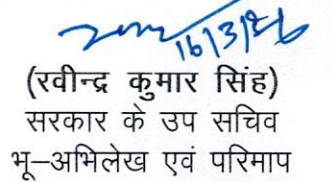 16/3/26
(रवीन्द्र कुमार सिंह)
सरकार के उप सचिव
भू–अभिलेख एवं परिमाप